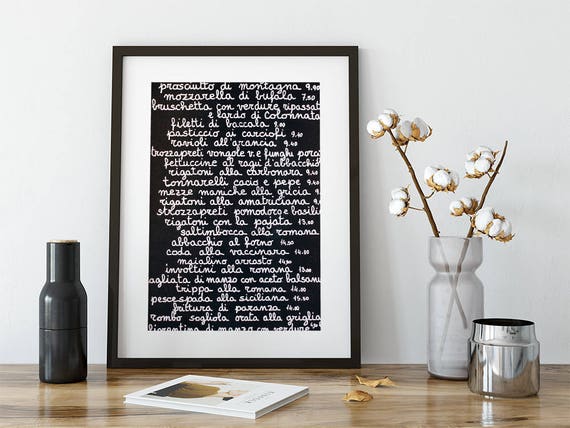 prosciutto di montagna 9.40
mozzarella di bufala 7.50
bruschetta con verdure ripassat
e lardo di Colonnata
filetti di baccala 9.00
pasticcio ai carciofi 9.
ravioli all'arancia 9.40
trozzapreti vongole v. e funghi porci
fettuccine al ragu' d'abbacchio
rigatoni alla carbonara 9.40
tonnarelli cacio e pepe 9.40
mezze maniche alla gricia 9.
rigatoni alla amatriciana 9.
strozzapreti pomodoro e basilic
rigatoni con la pajata 13.00
saltimbocca alla romana
abbacchio al forno 14.50
coda alla vaccinara 14.50
maialino arrosto 14.50
involtini alla romana 13.00
tagliata di manzo con aceto balsami
trippa alla romana 14.00
pesce spada alla siciliana 15.50
frittura di paranza 14.00
rombo sogliola orata alla griglia
fiorentina di manzo con verdure